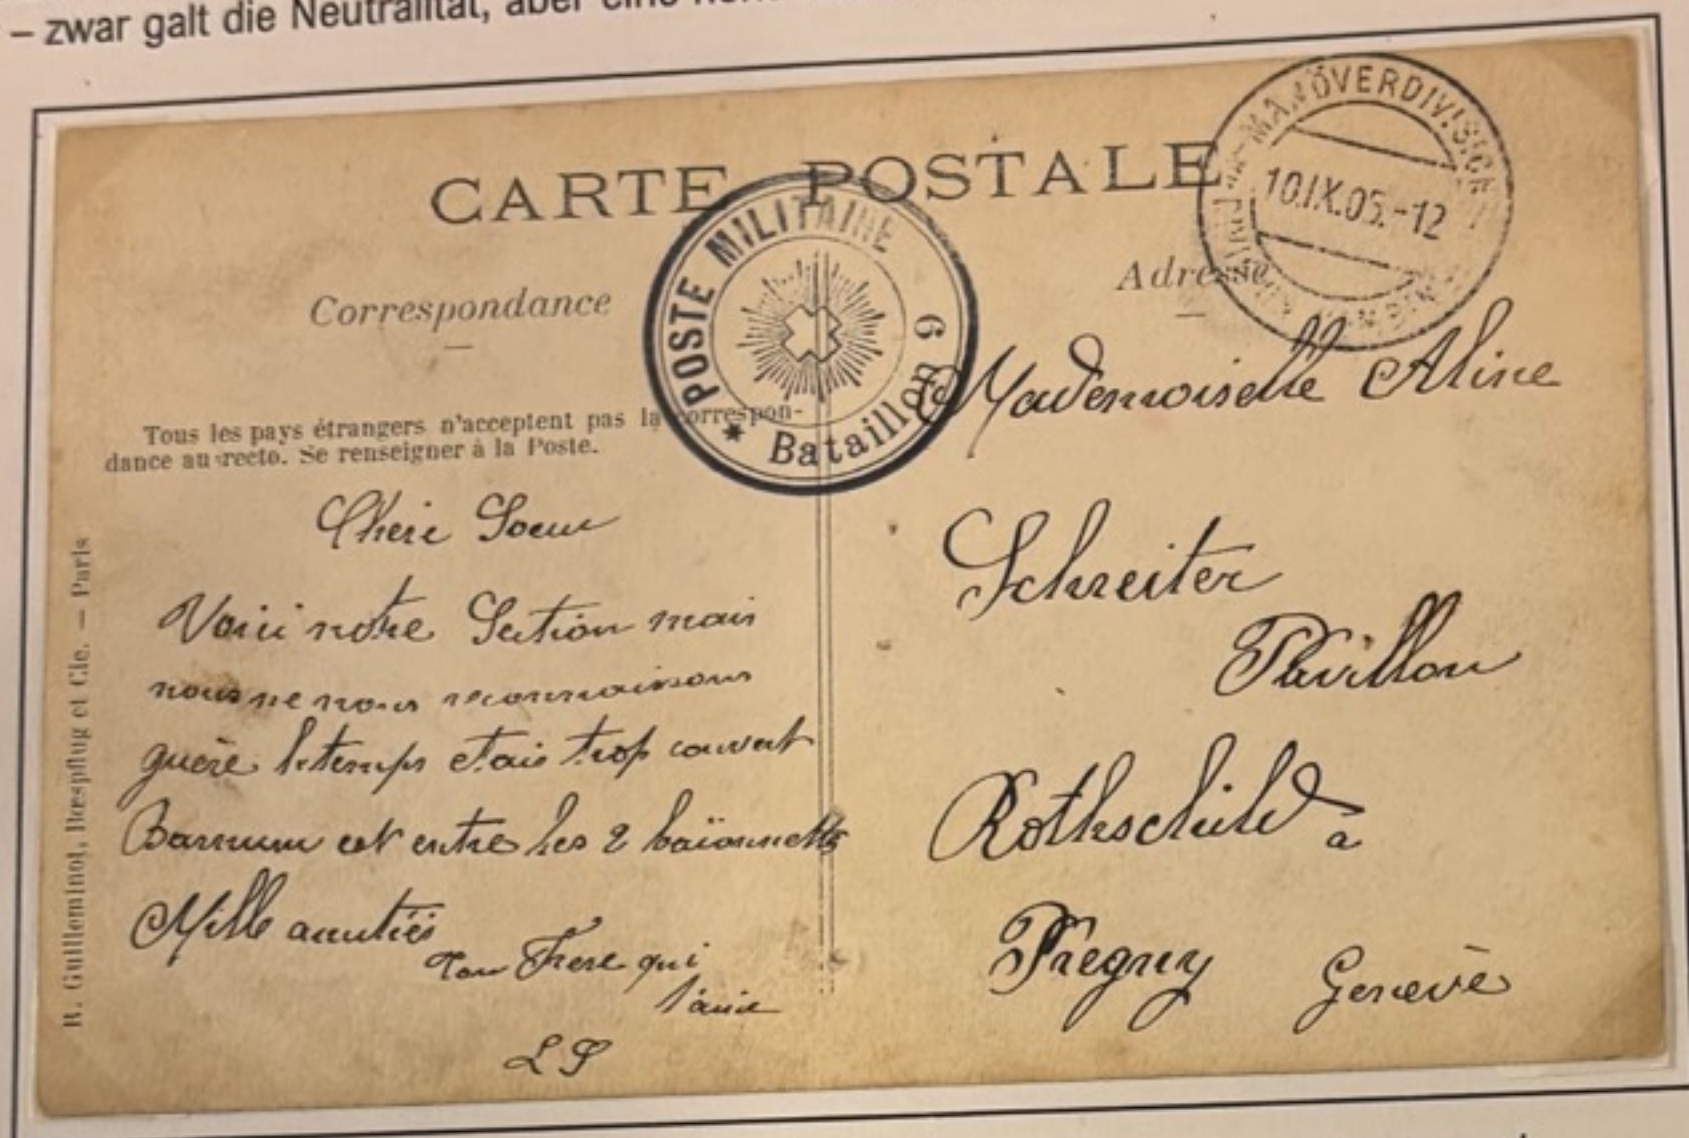 – zwar galt die Neutralität, aber eine
CARTE POSTALE
MANÖVERDIVISION
10.IX.05.-12
POSTE MILITAIRE
* Bataillon 9
Correspondance
Adresse
Tous les pays étrangers n'acceptent pas la correspon-
dance au recto. Se renseigner à la Poste.
R. Guilleminot, Bœspflug et Cie. — Paris
Chère Soeur
Voici notre Section mais
nous ne nous reconnaissons
guère le temps etais trop couvert
Barnum est entre les 2 baïonnettes
Mille amitiés
Ton Frere qui
t'aime
LS
Mademoiselle Aline
Schreiter
Pavillon
Rothschild à
Pregny Genève